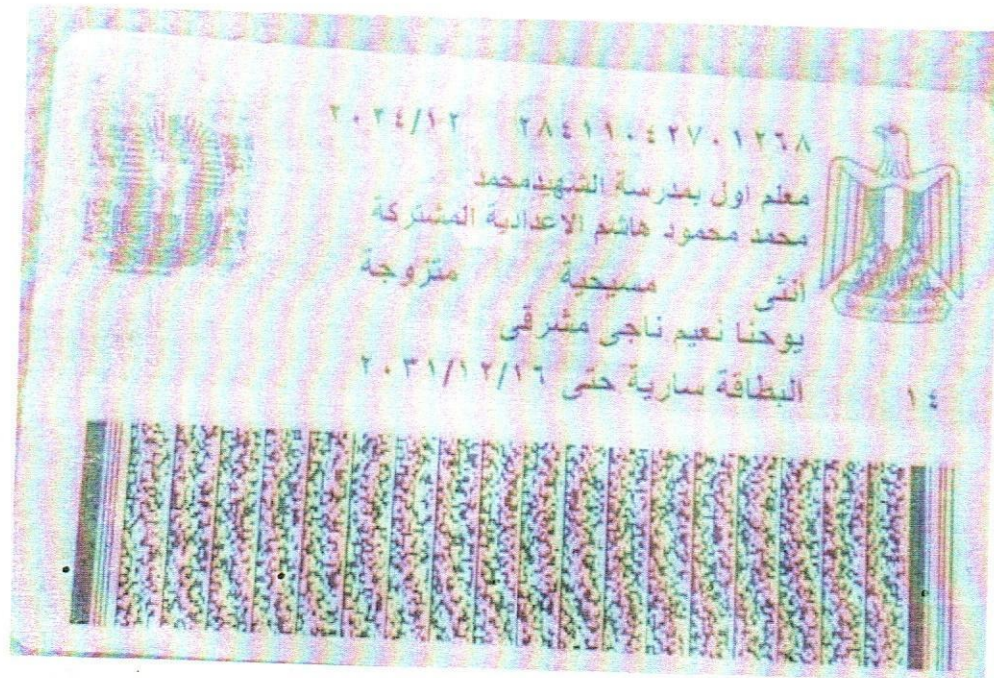 ٢٨٤١١٠٤٢٧٠١٢٦٨ ٢٠٢٤/١٢
معلم اول بمدرسة الشهيدمحمد
محمد محمود هاشم الاعدادية المشتركة
انثى مسيحية متزوجة
يوحنا نعيم ناجى مشرقى
البطاقة سارية حتى ٢٠٣١/١٢/١٦
١٤